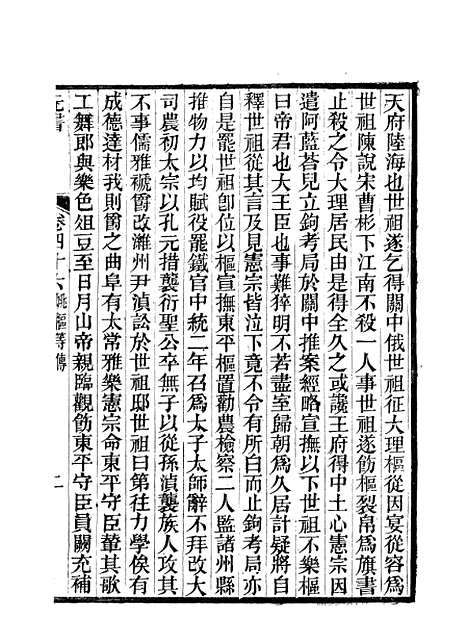 天府陸海也世祖遂乞得關中俄世祖征大理樞從因宴從容爲
世祖陳說宋曹彬下江南不殺一人事世祖遂飭樞裂帛爲旗書
止殺之令大理居民由是得全久之或讒王府得中土心憲宗因
遣阿藍荅兒立鉤考局於關中推案經略宣撫以下世祖不樂樞
曰帝君也大王臣也事難猝明不若盡室歸朝爲久居計疑將自
釋世祖從其言及見憲宗皆泣下竟不令有所白而止鉤考局亦
自是罷世祖卽位以樞宣撫東平樞置勸農檢察二人監諸州縣
推物力以均賦役罷鐵官中統二年召爲太子太師辭不拜改大
司農初太宗以孔元措襲衍聖公卒無子以從孫湞襲族人攻其
不事儒雅褫爵改濰州尹湞訟於世祖邸世祖曰第往力學俟有
成德達材我則爵之曲阜有太常雅樂憲宗命東平守臣輦其歌
工舞郎與樂色俎豆至日月山帝親臨觀飭東平守臣員闕充補
元書
卷四十六 姚樞等傳
二